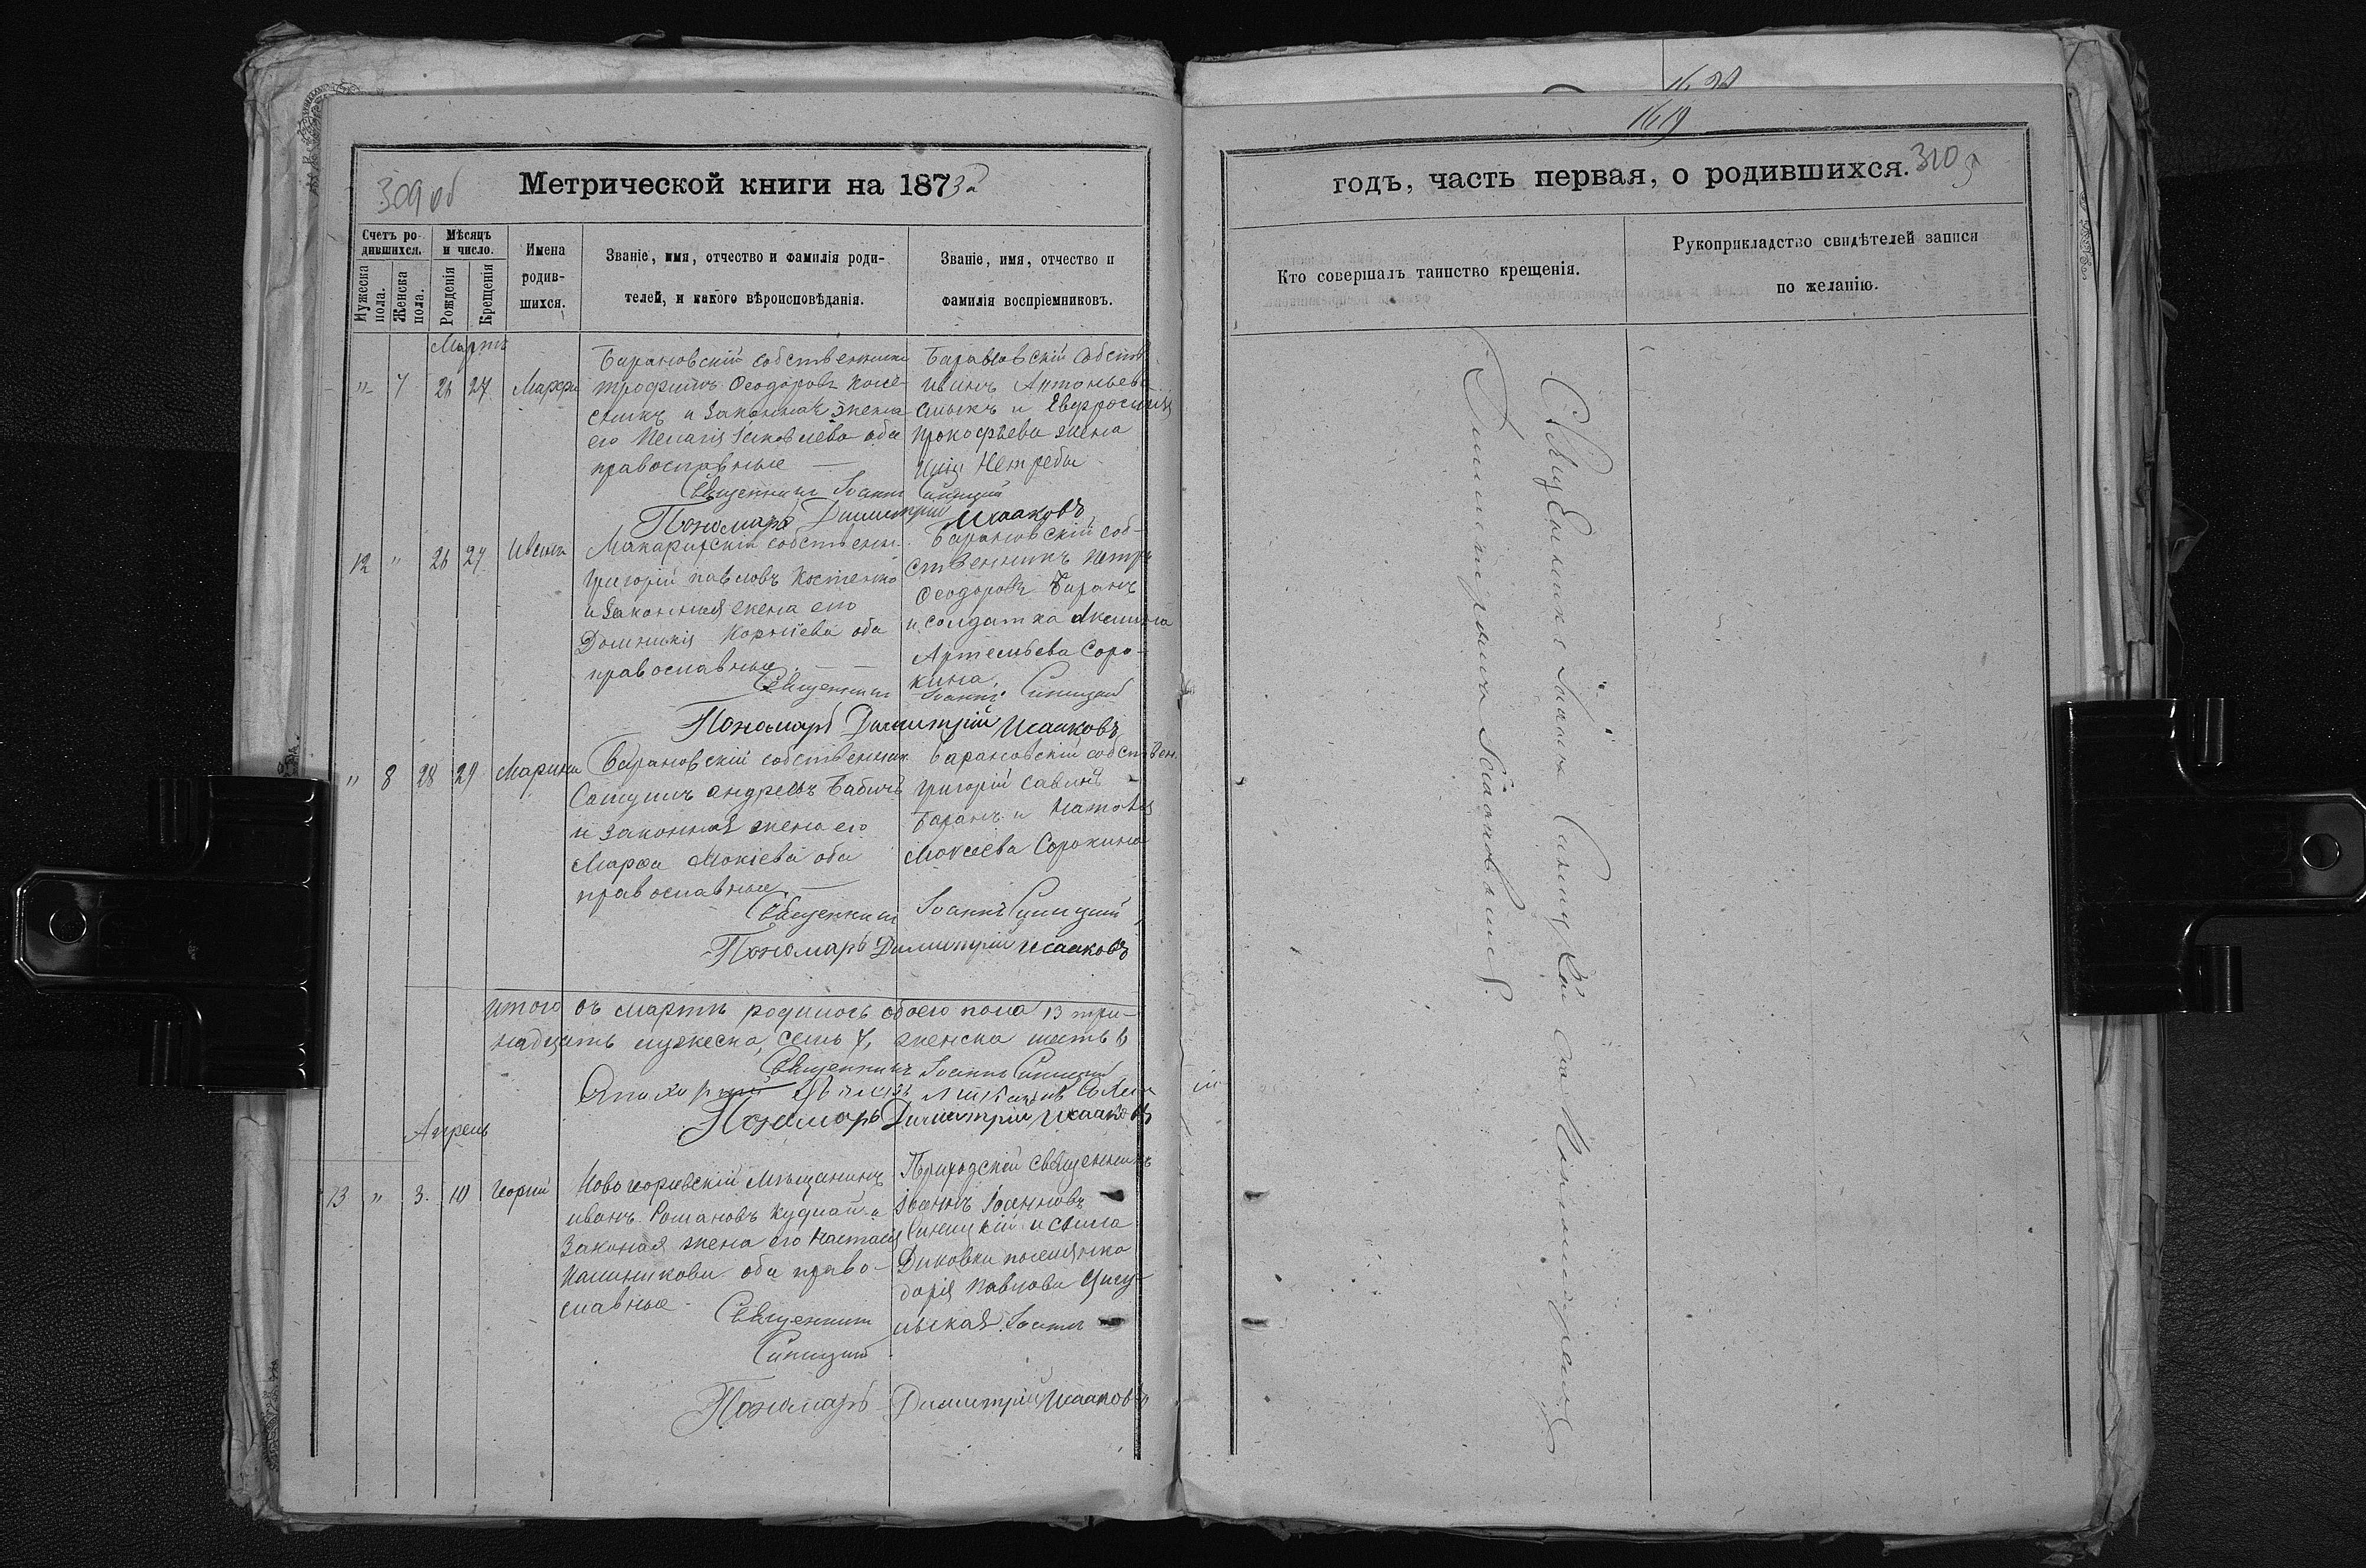 309 об
Метрической книги на 1873 й
Счетъ ро-
дившихся.
Мѣсяцъ
и число.
Мужеска
пола.
Женска
пола.
Рожденія
Крещенія
Имена
родив-
шихся.
Званіе, имя, отчество и фамилія роди-
телей, и какого вѣроисповѣданія.
Званіе, имя, отчество и
фамилія воспріемниковъ.
Мартъ
" 7 26 27 Марфа
Барановскій собственникъ
Трофимъ Ѳеодоровъ
и законная жена
его Пелагія Іаковлева оба
православные —
Барановскій Собств
Иванъ Антоньевъ
Смыкъ и Евфросинія
Прокофьева жена
Нетребы
Священникъ Іоаннъ Синицкій
Пономарь Димитрій Исааковъ
12 " 26 27 Иванъ
собственн.
Григорій Павловъ Костенко
и законная жена его
Домникія Корніева оба
православные. — —
Барановскій соб-
ственникъ Петръ
Ѳеодоровъ Баранъ
и солдатка Акилина
Артемьева Соро-
кина.
Священникъ Іоаннъ Синицкій
Пономарь Димитрій Исааковъ
" 8 28 29 Марина
Барановскій собственник.
Андреевъ Бабичъ
и законная жена его
Марфа Мокіева оба
православные. —
Барановскій собствен.
Григорій Савинъ
Баранъ и Наталія
Моисеева Сорокина
Священникъ Іоаннъ Синицкій
Пономарь Димитрій Исааковъ
Итого въ мартѣ родилось обоего пола 13 три-
надцать мужеска, семь 7, женска шесть 6
Священникъ Іоаннъ Синицкій
Пономарь Димитрій Исааковъ
Апрель
13 " 3. 10 Георгій
Новогеоргіевскій Мѣщанинъ
Иванъ Романовъ и
Законая жена его Настасія
Калиникова оба право-
славные.
Приходскій священникъ
Іоаннъ Іоанновъ
Синицкій и села
Диковки поселянка
Дарія Павлова Цигу-
льская. Іоаннъ
Священникъ
Синицкій
Пономарь Димитрій Исааковъ
1619
годъ, часть первая, о родившихся.
310
Кто совершалъ таинство крещенія.
Рукоприкладство свидѣтелей записи
по желанію.
Священникъ Іоаннъ Синицкій съ Пономаремъ
Димитріемъ Исааковымъ.